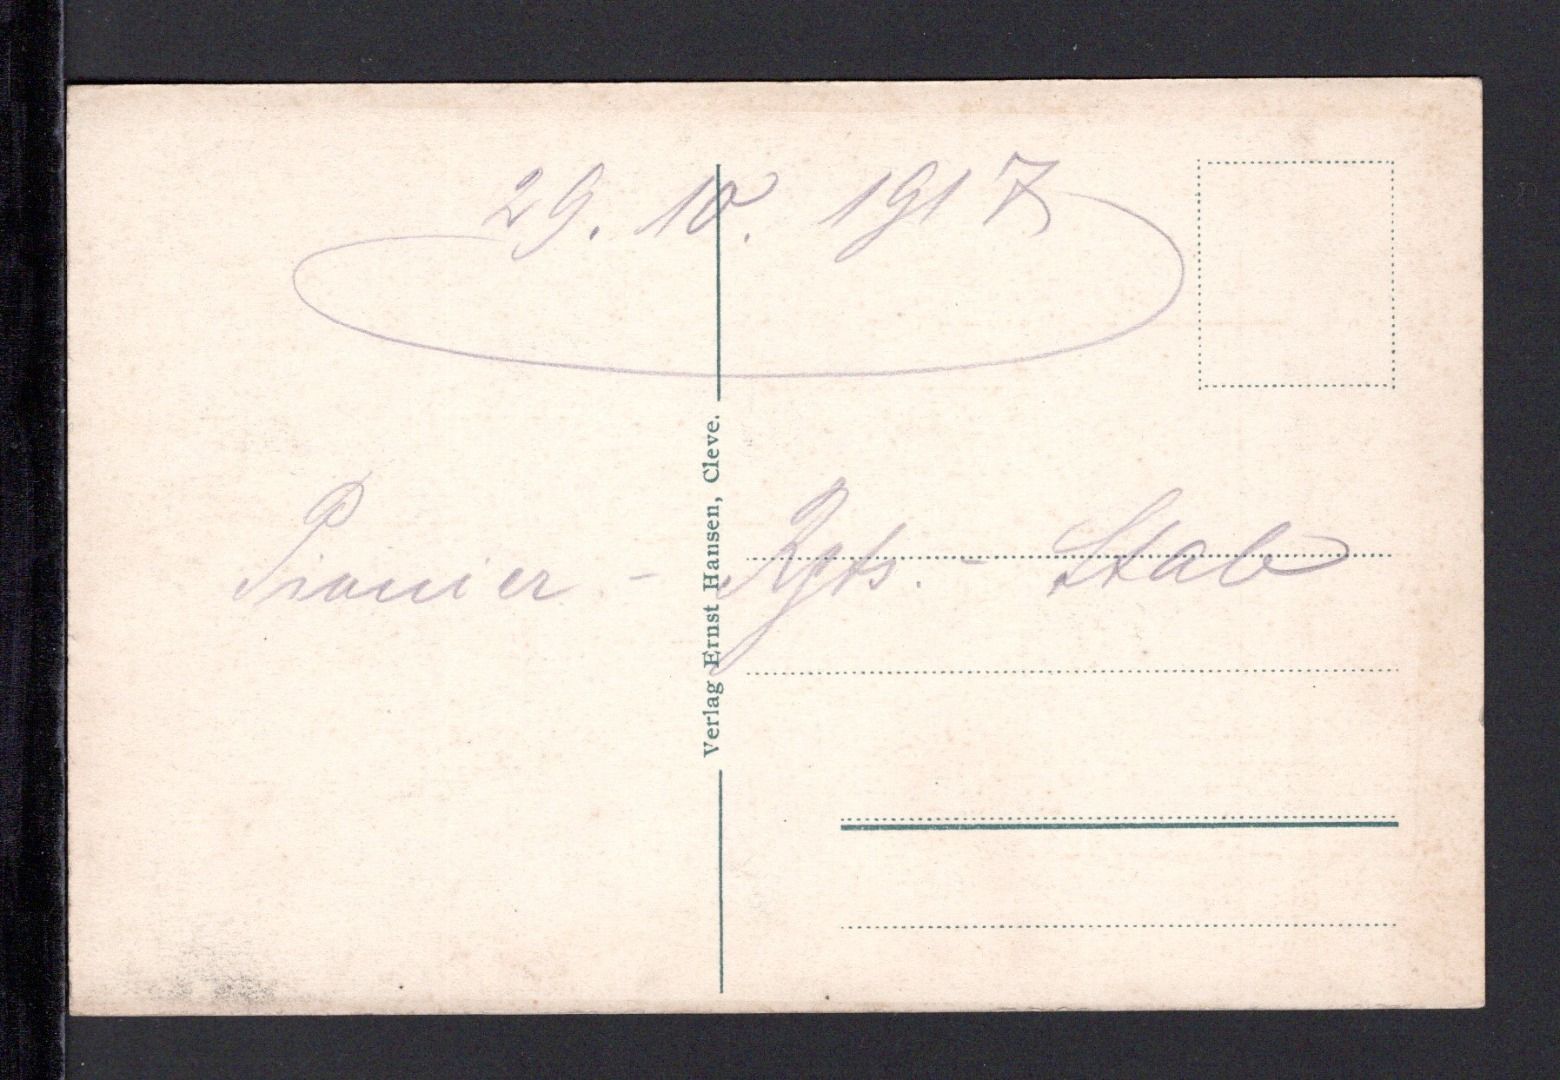 29. 10. 1917
Pionier - Rgts. - Stab
Verlag Ernst Hansen, Cleve.